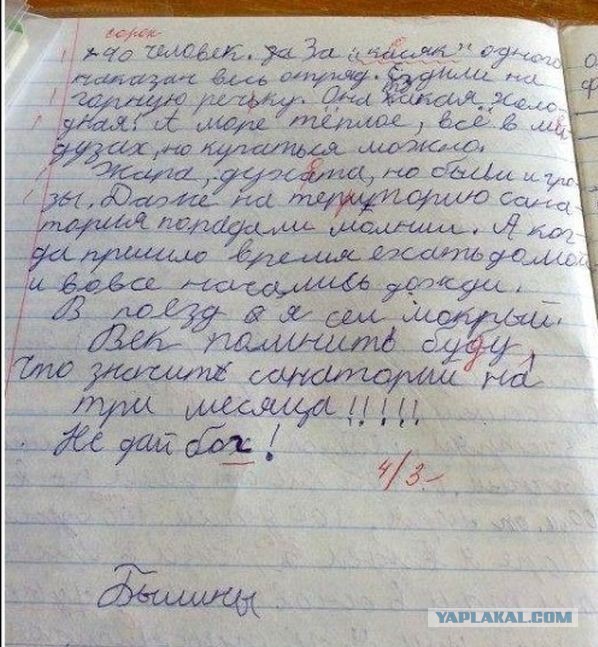 сорок
40 человек. За "касяк" одного
наказан весь отряд. Ездили на
горную речьку. Она такая холо
дная! А море тёплое, всё в ме
дузах, но купаться можно.
Жара, духата, но были и гро-
зы. Даже на территорию сана-
тория попадали молнии. А ког-
да пришло время ехать домой
и вовсе начались дожди.
В поезд я сел мокрый.
Век помнить буду,
что значит санаторий на
три месяца!!!!!
Не дай бох!
4/3-
Былины
YAPLAKAL.COM